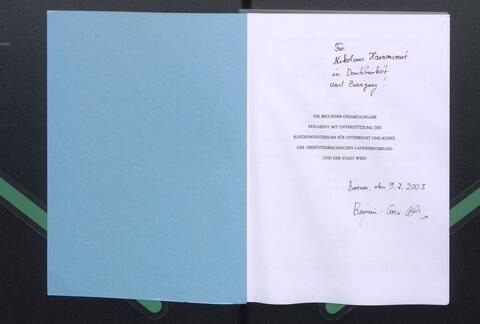 Für
Nikolaus Harnoncourt
in Dankbarkeit
und Zuneigung!
DIE BRUCKNER-GESAMTAUSGABE
ERSCHEINT MIT UNTERSTÜTZUNG DES
BUNDESMINISTERIUMS FÜR UNTERRICHT UND KUNST,
DER OBERÖSTERREICHISCHEN LANDESREGIERUNG
UND DER STADT WIEN
Bremen, den 9.7.2003
Benjamin-Gunnar